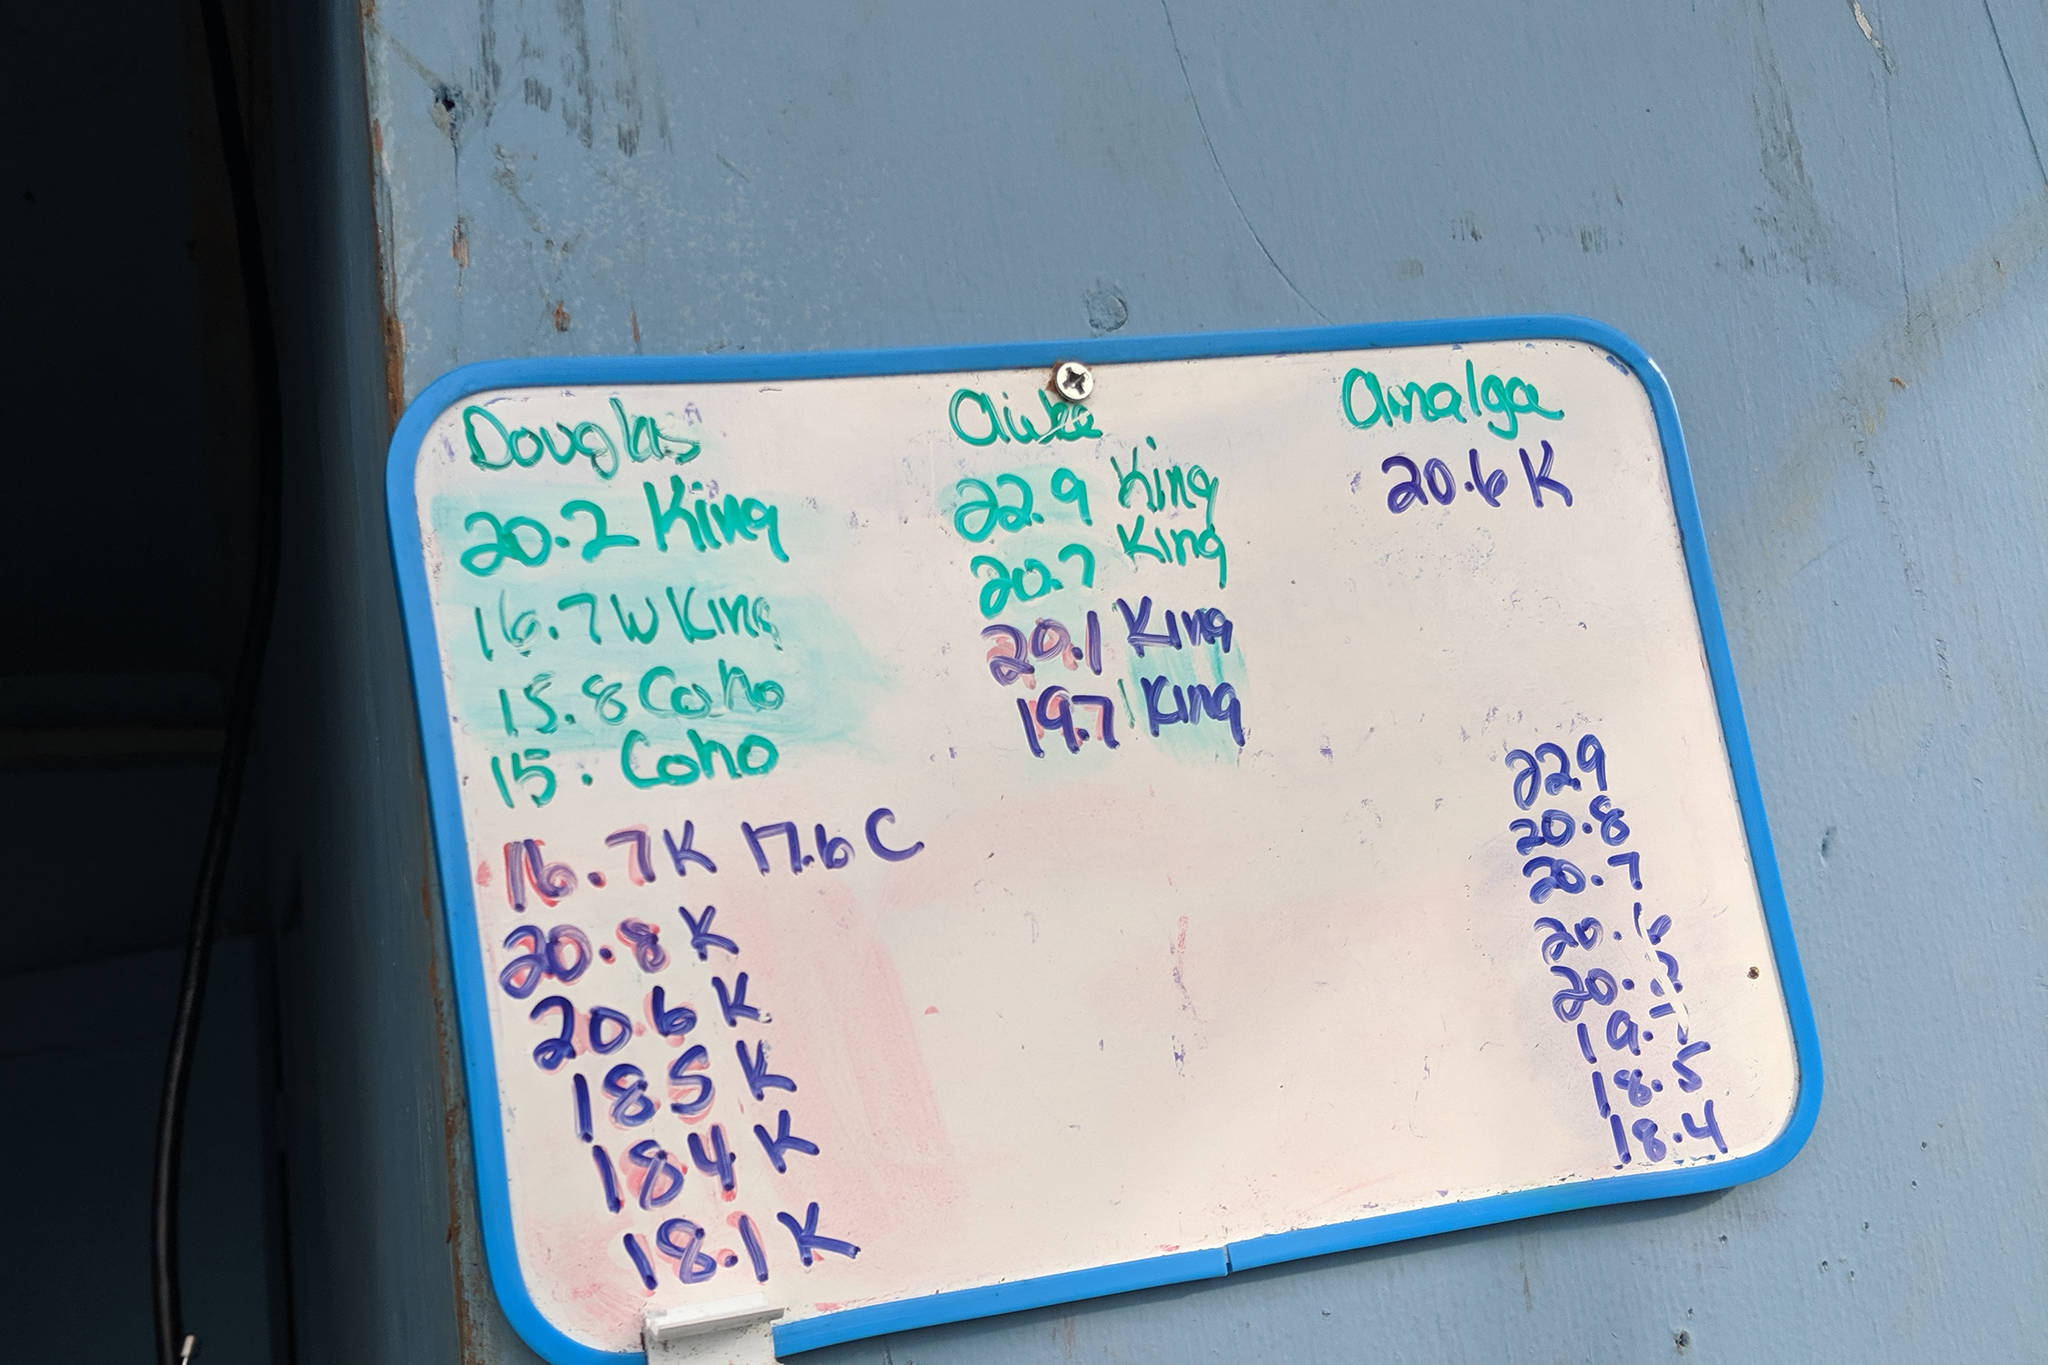 Douglas
20.2 King
16.7 W King
15.8 Coho
15. Coho
16.7 K 17.6 C
20.8 K
20.6 K
18.5 K
18.4 K
18.1 K
Auke
22.9 King
20.7 King
20.1 King
19.7 King
Amalga
20.6 K
22.9
20.8
20.7
20.6
20.
19.
18.5
18.4